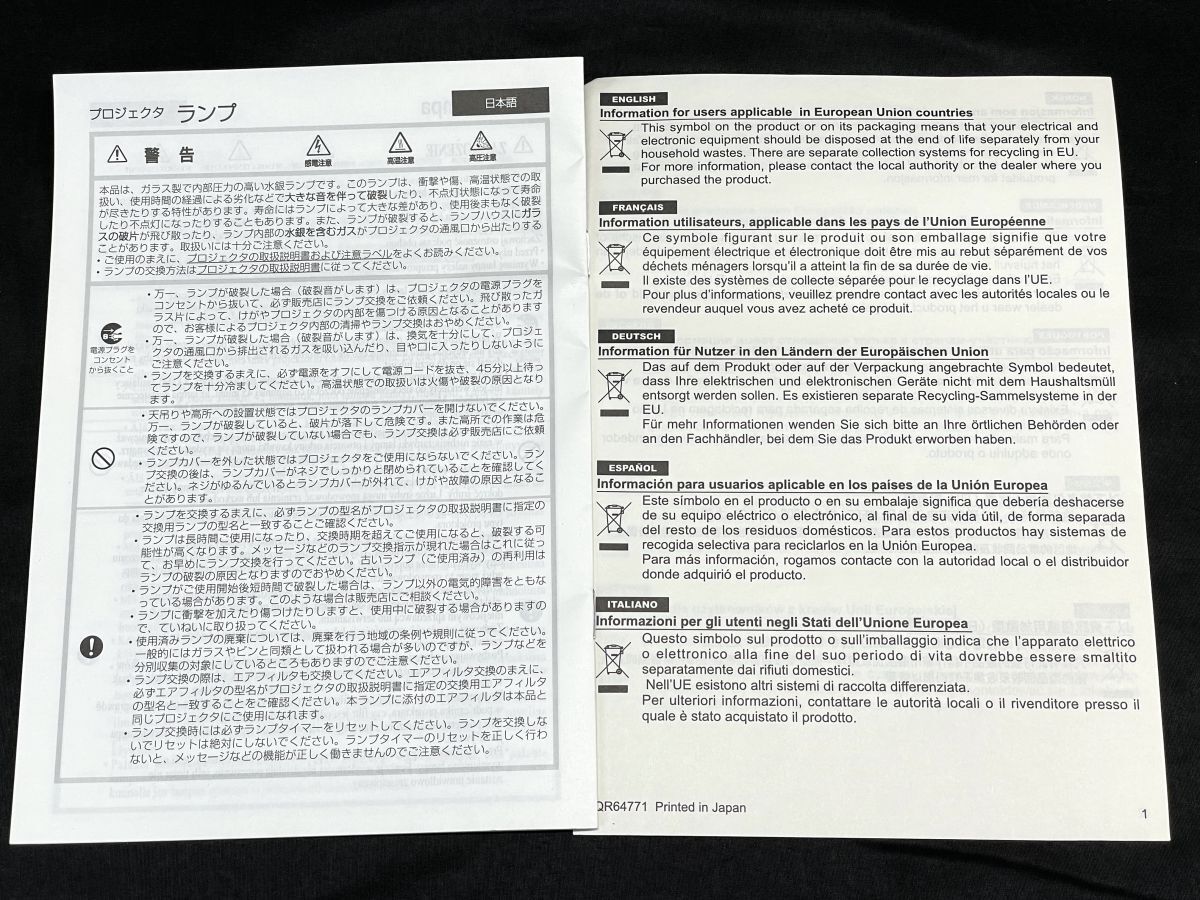 日本語
プロジェクタ ランプ
警告
感電注意
高温注意
高圧注意
本品は、ガラス製で内部圧力の高い水銀ランプです。このランプは、衝撃や傷、高温状態での取
扱い、使用時間の経過による劣化などで大きな音を伴って破裂したり、不点灯状態になって寿命
が尽きたりする特性があります。寿命にはランプによって大きな差があり、使用後まもなく破裂
したり不点灯になったりすることもあります。また、ランプが破裂すると、ランプハウスにガラ
スの破片が飛び散ったり、ランプ内部の水銀を含むガスがプロジェクタの通風口から出たりする
ことがあります。取扱いには十分ご注意ください。
・ご使用のまえに、プロジェクタの取扱説明書および注意ラベルをよくお読みください。
・ランプの交換方法はプロジェクタの取扱説明書に従ってください。
電源プラグを
コンセント
から抜くこと
・万一、ランプが破裂した場合（破裂音がします）は、プロジェクタの電源プラグを
コンセントから抜いて、必ず販売店にランプ交換をご依頼ください。飛び散ったガ
ラス片によって、けがやプロジェクタの内部を傷つける原因となることがあります
ので、お客様によるプロジェクタ内部の清掃やランプ交換はおやめください。
・万一、ランプが破裂した場合（破裂音がします）は、換気を十分にして、プロジェ
クタの通風口から排出されるガスを吸い込んだり、目や口に入ったりしないように
ご注意ください。
・ランプを交換するまえに、必ず電源をオフにして電源コードを抜き、45分以上待っ
てランプを十分冷ましてください。高温状態での取扱いは火傷や破裂の原因となり
ます。
・天吊りや高所への設置状態ではプロジェクタのランプカバーを開けないでください。
万一、ランプが破裂していると、破片が落下して危険です。また高所での作業は危
険ですので、ランプが破裂していない場合でも、ランプ交換は必ず販売店にご依頼
ください。
・ランプカバーを外した状態ではプロジェクタをご使用にならないでください。ラン
プ交換の後は、ランプカバーがネジでしっかりと閉められていることを確認してく
ださい。ネジがゆるんでいるとランプカバーが外れて、けがや故障の原因となるこ
とがあります。
・ランプを交換するまえに、必ずランプの型名がプロジェクタの取扱説明書に指定の
交換用ランプの型名と一致することご確認ください。
・ランプは長時間ご使用になったり、交換時期を超えてご使用になると、破裂する可
能性が高くなります。メッセージなどのランプ交換指示が現れた場合はこれに従っ
て、お早めにランプ交換を行ってください。古いランプ（ご使用済み）の再利用は
ランプの破裂の原因となりますのでおやめください。
・ランプがご使用開始後短時間で破裂した場合は、ランプ以外の電気的障害をともな
っている場合があります。このような場合は販売店にご相談ください。
・ランプに衝撃を加えたり傷つけたりしますと、使用中に破裂する場合がありますの
で、ていねいに取り扱ってください。
・使用済みランプの廃棄については、廃棄を行う地域の条例や規則に従ってください。
一般的にはガラスやビンと同類として扱われる場合が多いのですが、ランプなどを
分別収集の対象にしているところもありますのでご注意ください。
・ランプ交換の際は、エアフィルタも交換してください。エアフィルタ交換のまえに、
必ずエアフィルタの型名がプロジェクタの取扱説明書に指定の交換用エアフィルタ
の型名と一致することをご確認ください。本ランプに添付のエアフィルタは本品と
同じプロジェクタにご使用になれます。
・ランプ交換時には必ずランプタイマーをリセットしてください。ランプを交換しな
いでリセットは絶対にしないでください。ランプタイマーのリセットを正しく行わ
ないと、メッセージなどの機能が正しく働きませんのでご注意ください。
ENGLISH
Information for users applicable in European Union countries
This symbol on the product or on its packaging means that your electrical and
electronic equipment should be disposed at the end of life separately from your
household wastes. There are separate collection systems for recycling in EU.
For more information, please contact the local authority or the dealer where you
purchased the product.
FRANÇAIS
Information utilisateurs, applicable dans les pays de l'Union Européenne
Ce symbole figurant sur le produit ou son emballage signifie que votre
équipement électrique et électronique doit être mis au rebut séparément de vos
déchets ménagers lorsqu'il a atteint la fin de sa durée de vie.
Il existe des systèmes de collecte séparée pour le recyclage dans l'UE.
Pour plus d'informations, veuillez prendre contact avec les autorités locales ou le
revendeur auquel vous avez acheté ce produit.
DEUTSCH
Information für Nutzer in den Ländern der Europäischen Union
Das auf dem Produkt oder auf der Verpackung angebrachte Symbol bedeutet,
dass Ihre elektrischen und elektronischen Geräte nicht mit dem Haushaltsmüll
entsorgt werden sollen. Es existieren separate Recycling-Sammelsysteme in der
EU.
Für mehr Informationen wenden Sie sich bitte an Ihre örtlichen Behörden oder
an den Fachhändler, bei dem Sie das Produkt erworben haben.
ESPAÑOL
Información para usuarios aplicable en los países de la Unión Europea
Este símbolo en el producto o en su embalaje significa que debería deshacerse
de su equipo eléctrico o electrónico, al final de su vida útil, de forma separada
del resto de los residuos domésticos. Para estos productos hay sistemas de
recogida selectiva para reciclarlos en la Unión Europea.
Para más información, rogamos contacte con la autoridad local o el distribuidor
donde adquirió el producto.
ITALIANO
Informazioni per gli utenti negli Stati dell'Unione Europea
Questo simbolo sul prodotto o sull'imballaggio indica che l'apparato elettrico
o elettronico alla fine del suo periodo di vita dovrebbe essere smaltito
separatamente dai rifiuti domestici.
Nell'UE esistono altri sistemi di raccolta differenziata.
Per ulteriori informazioni, contattare le autorità locali o il rivenditore presso il
quale è stato acquistato il prodotto.
QR64771 Printed in Japan
1